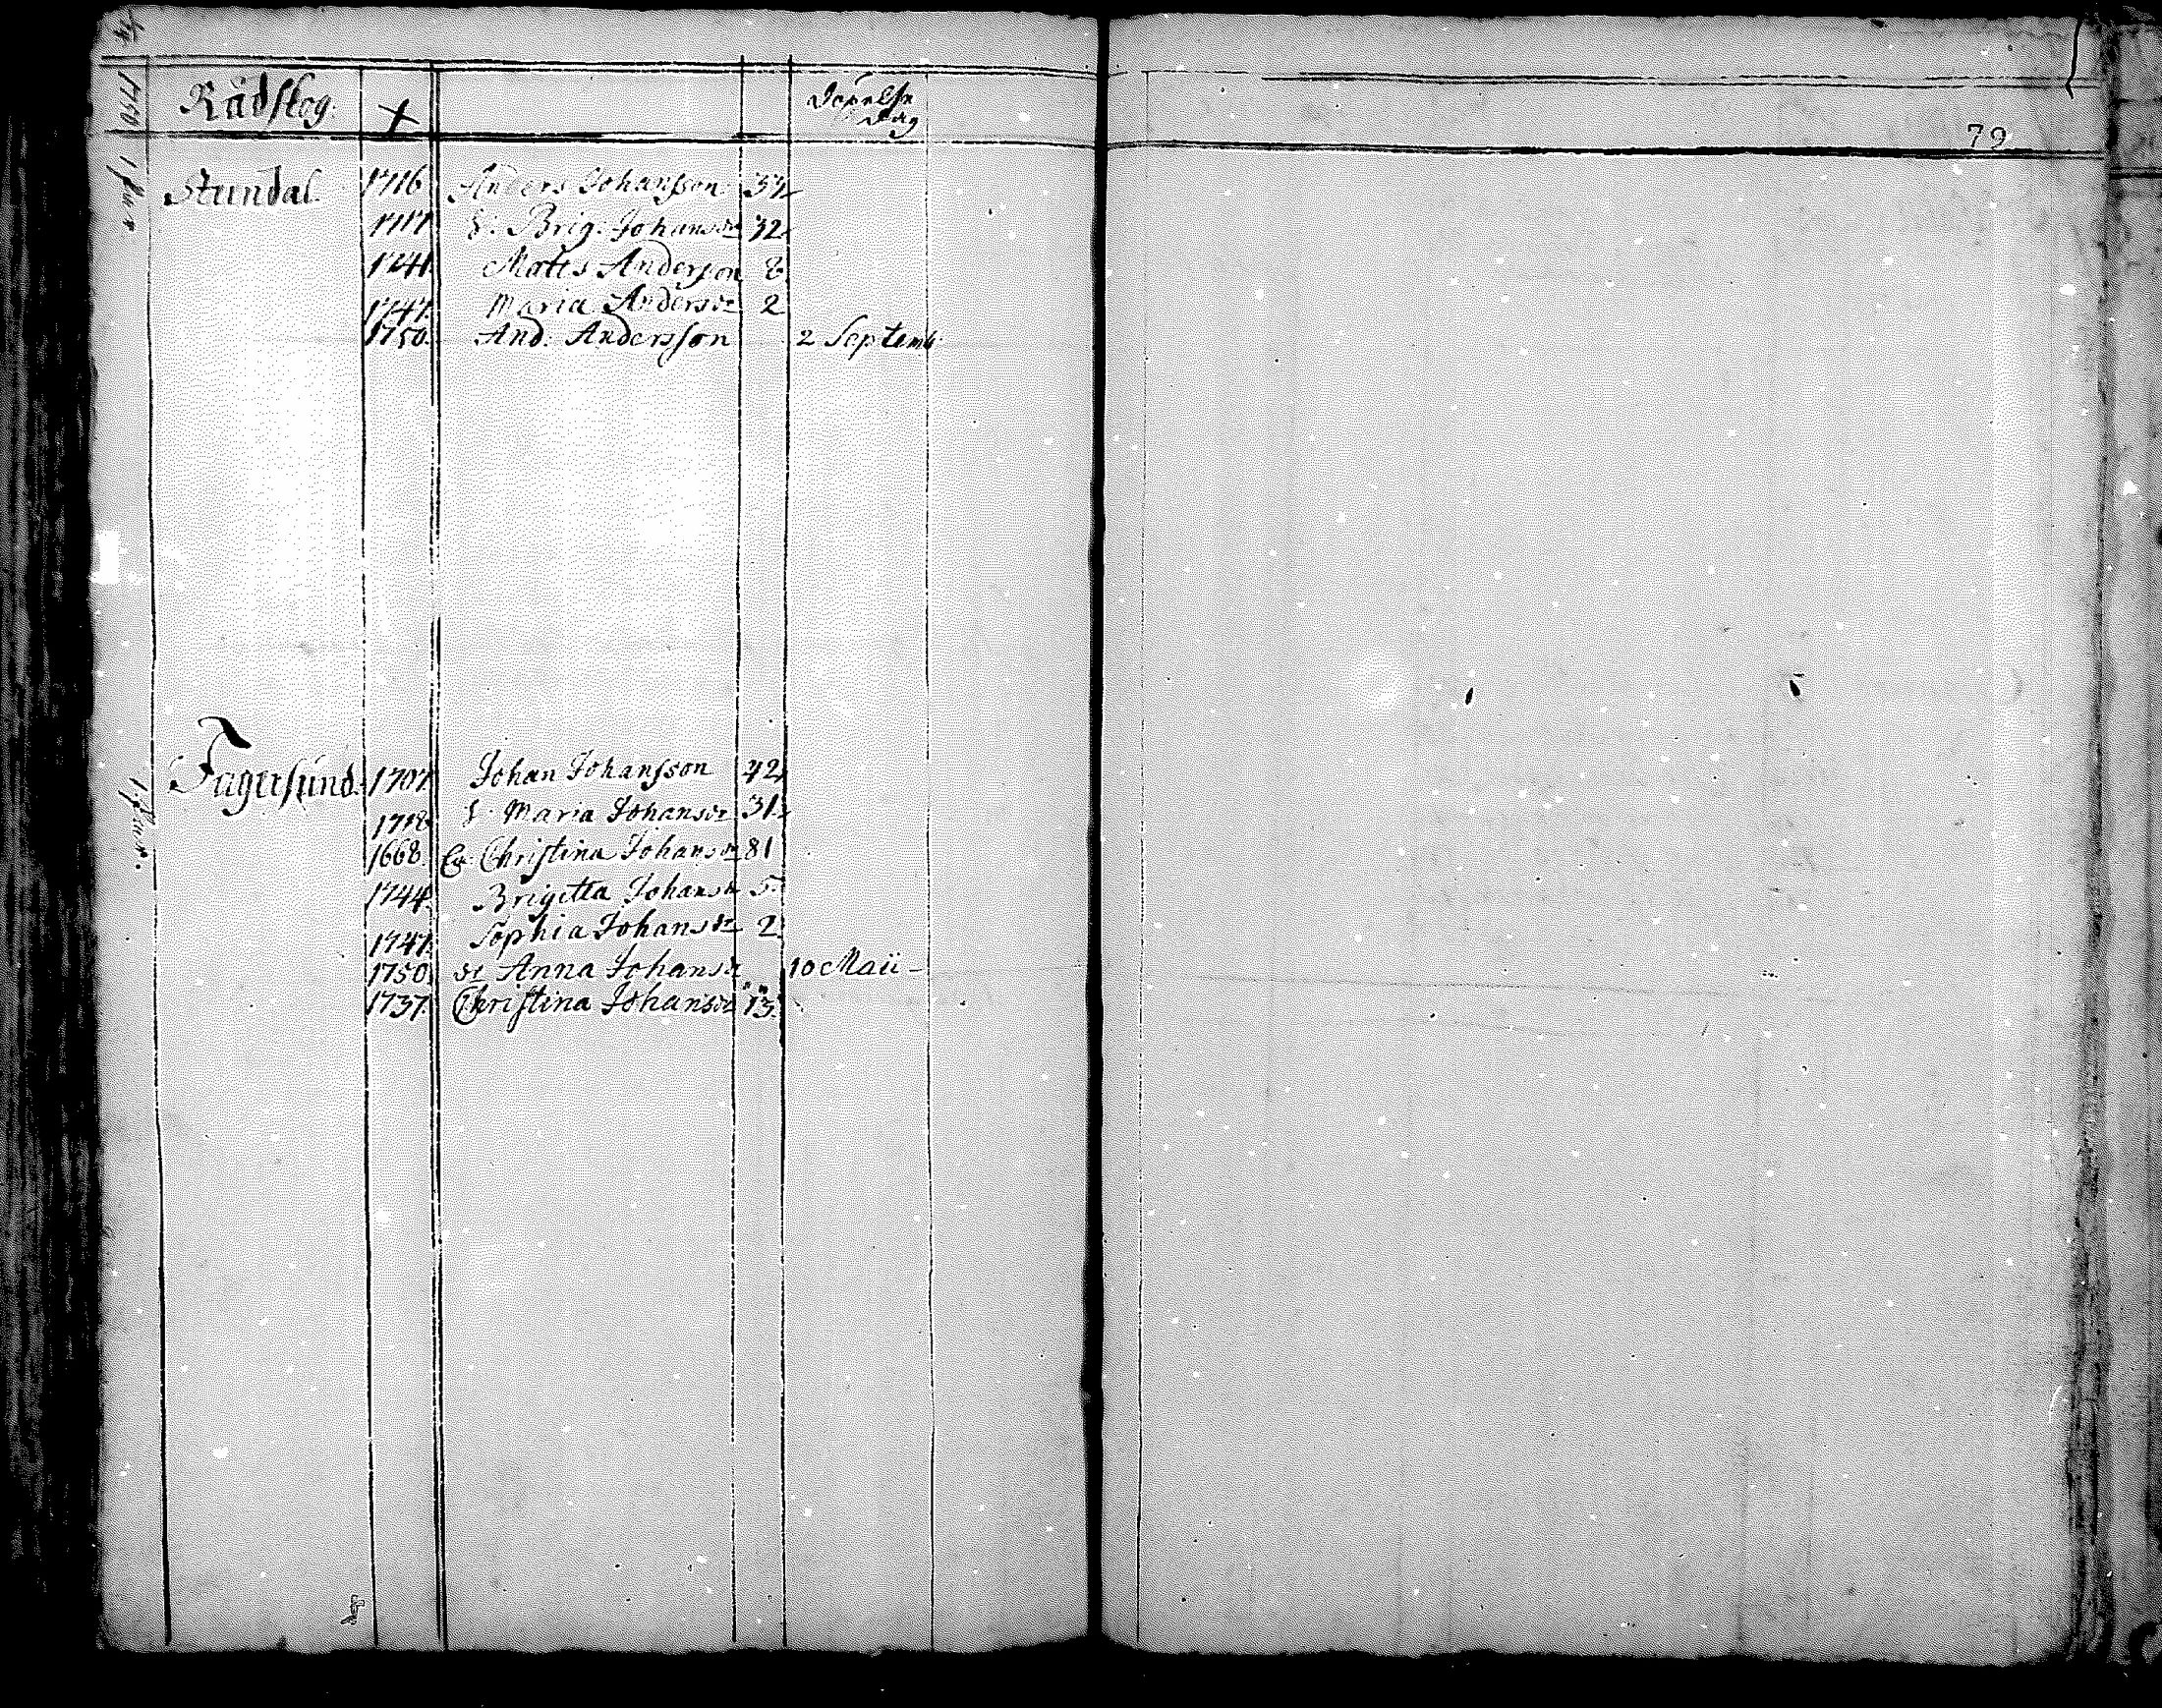 1750
Rådskog. + Döpelse
dag
79
Stundal. 1716 Anders Johansson
1717 h: Brig. Johansdr 32.
1741. Matts Anderson 8
1747. Maria Andersdr 2
1750. And. Andersson 2 Septemb.
Fagersund. 1707. Johan Johansson 42
1718 h. Maria Johansdr 31.
1668. Christina Johansdr 81
1744. Brigitta Johansdr 5.
1747. Sophia Johansdr 2.
1750. Anna Johansdr 10 Maii
1737. Christina Johansdr 13.